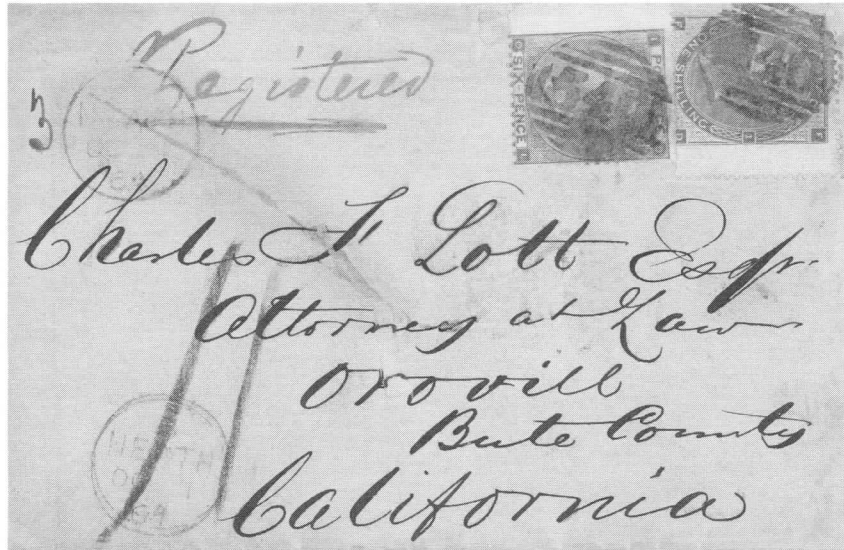 Registered
3
SIX PENCE
ONE SHILLING
Charles F Lott Esqr.
Attorney at Law
Orovill
Bute County
California
NEATH
OC
64